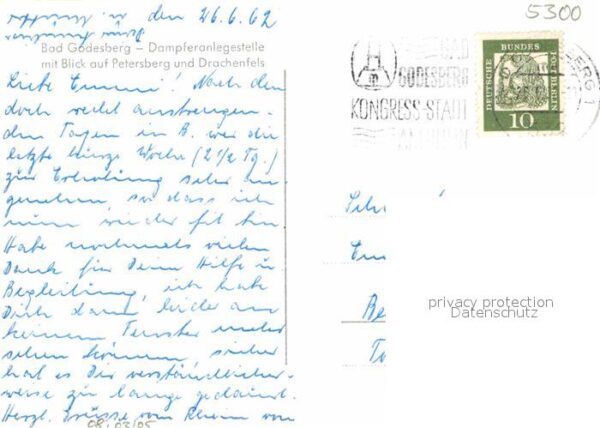 den 26.6.62
Bad Godesberg – Dampferanlegestelle
mit Blick auf Petersberg und Drachenfels
Liebe Emmi! Nach den
doch recht anstrengen-
den Tagen in B. war die
letzte kurze Woche (2 1/2 Tg.)
zur Erholung sehr an
genehm, so dass ich
nun wieder fit bin
Habe nochmals vielen
Dank für Deine Hilfe u
Begleitung, ich habe
Dich dann leider an
keinem Fenster mehr
sehen können, sicher
hat es Dir verständlicher-
weise zu lange gedauert.
Herzl. Grüsse vom Rhein von
08/03/05
5300
BAD
GODESBERG
KONGRESS-STADT
AM RHEIN
DEUTSCHE BUNDESPOST BERLIN
10
privacy protection
Datenschutz